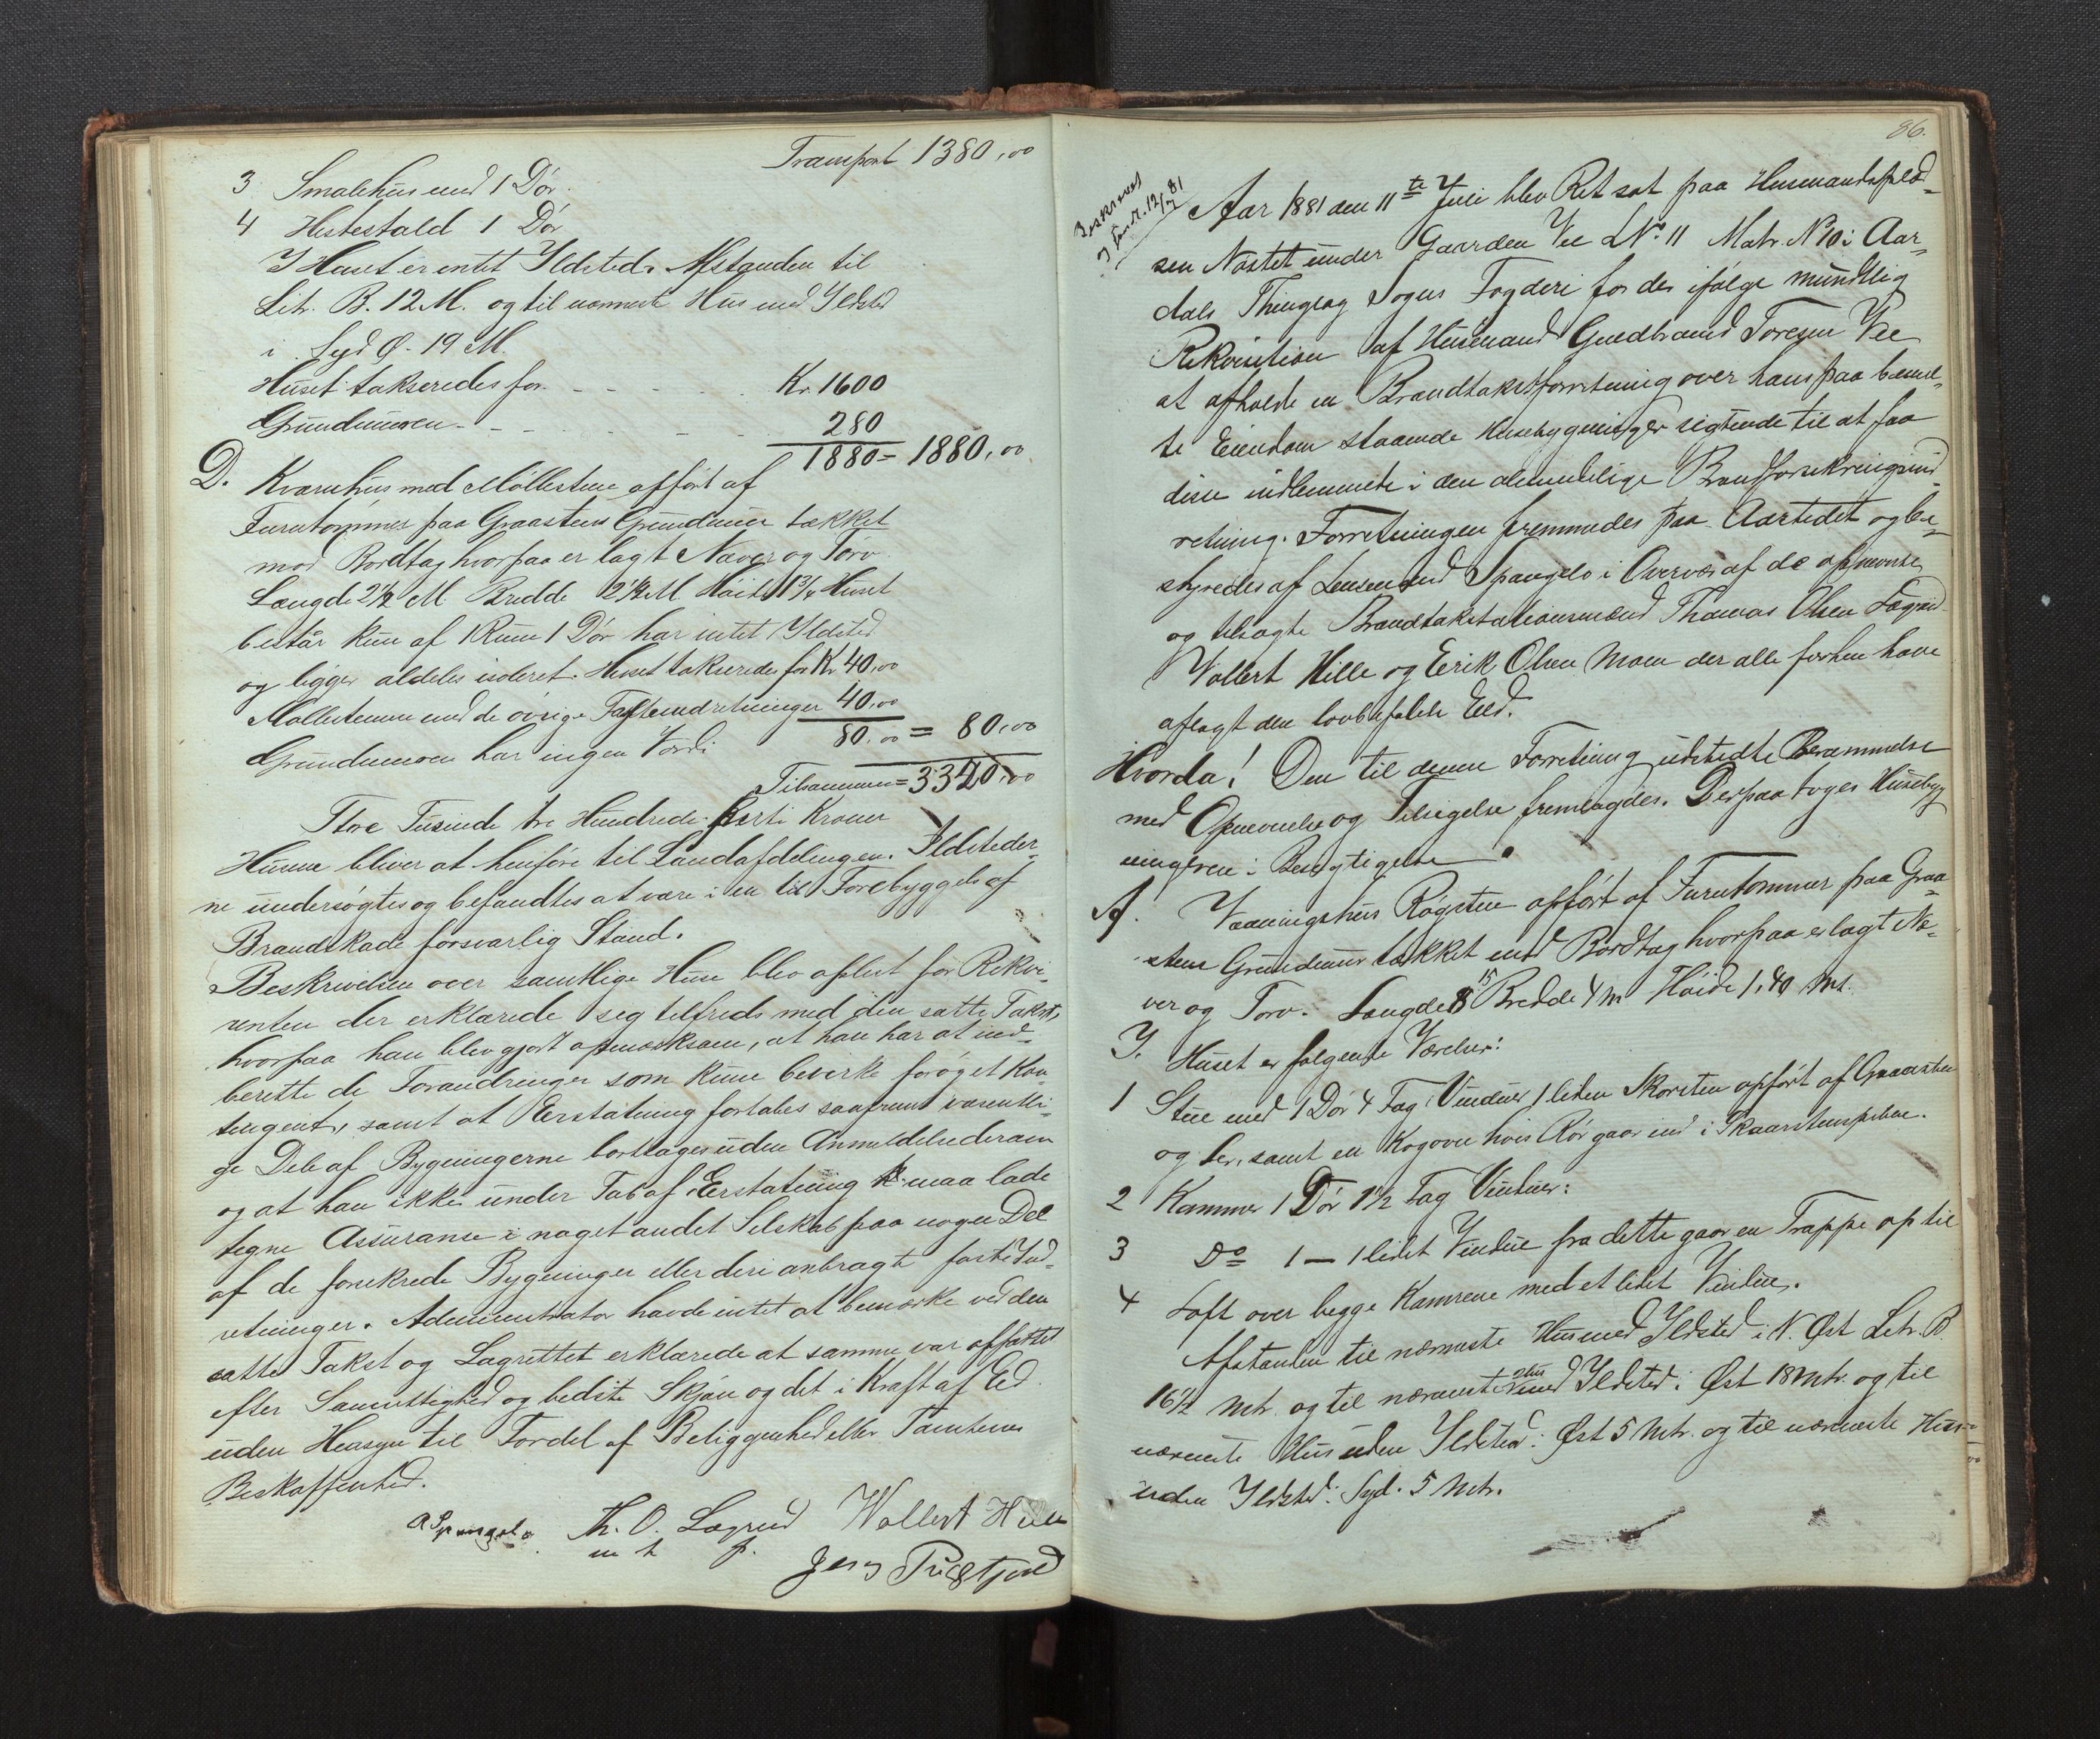 Transport 1380,00
3 Smalehus med 1 Dør.
4 Hestestald 1 Dør
I Huset er intet Ildsted. Afstanden til
Litr. B. 12 M. og til nærmeste Hus med Ildsted
i Syd Ø. 19 M.
Huset takseredes for - - - - Kr. 1600
Grundmuren - - - - - 280
1880 = 1880,00
D. Kværnhus med Møllestene opført af
Furutømmer paa Graastens Grundmur tækket
med Bordtag hvorpaa er lagt Næver og Torv
Længde 2½ M Bredde 2½ M Høide 1¾ Huset
består kun af 1 Rum 1 Dør har intet Ildsted
og ligger aldeles isoleret. Huset takseredes for Kr 40,00
Møllestenene med de øvrige Faste indretninger 40,00
80,00 = 80,00
Grundmuren har ingen Værdi
Tilsammen = 3340,00
Tre Tusinde tre Hundrede førti Kroner
Husene bliver at henføre til Landafdelingen. Ildsteder-
ne undersøgtes og befandtes at være i en til Forebyggelse af
Brandskade forsvarlig Stand.
Beskrivelsen over samtlige Huse blev oplæst for Rekvi-
renten der erklærede sig tilfreds med den satte Takst,
hvorpaa han blev gjort opmærksom, at han har at ind-
berette de Forandringer som kunne bevirke forøget Kon-
tingent, samt at Erstatning fortabes saafremt væsentli-
ge Dele af Bygningerne borttages uden Anmeldelse derom
og at han ikke under Tab af Erstatning maa lade
tegne Assurance i noget andet Selskab paa nogen Del
af de forsikrede Bygninger eller deri anbragte faste Ind-
retninger. Administrator havde intet at bemærke ved den
satte Takst og Lagrettet erklærede at samme var affattet
efter Samvittighed og bedste Skjøn og det i Kraft af Ed
uden Hensyn til Fordel af Beliggenhed eller Tomtens
Beskaffenhed.
A Spangelo Th. O. Lægreid Wollert Hille
m t p.
Jens
86.
Beskrevet
Aar 1881 den 11te Juli blev Ret sat paa Husmandsplad-
sen Nøstet under Gaarden Vee LNo. 11 Matr. No 10 i Aar-
dals Thinglag Sogns Fogderi for der ifølge mundtlig
Rekvisition af Husmand Gudbrand Toresen Vee
at afholde en Brandtakstforretning over hans paa bemeld-
te Eiendom staaende Husebygninger sigtende til at faa
disse indlemmede i den almindelige Brandforsikringsind-
retning. Forretningen fremmedes paa Aastedet og be-
styredes af Lensmand Spangelo i Overvær af de opnævnte
og tilsagte Brandtakstationsmænd Thomas Olsen Lægreid
Wollert Hille og Eerik Olsen Moen der alle forhen have
aflagt den lovbefalede Eed.
Hvorda! Den til denne Forretning udstedte Berammelse
med Opnævnelse og Tilsigelse fremlagdes. Derpaa toges Husebyg
ningerne i Besigtigelse
A. Vaaningshus Røgstue opført af Furutømmer paa Graa-
stens Grundmur tækket med Bordtag hvorpaa er lagt Næ-
ver og Torv. Længde 8,15 Bredde 4 m Høide 1,40 Mt.
I Huset er følgende Værelser:
1 Stue med 1 Dør 4 Fag Vinduer 1 liden Skorsten opført af Graasten
og Ler, samt en Kogovn hvis Rør gaar ind i Skaarstenspiben.
2 Kammer 1 Dør 1½ Fag Vinduer:
3 Do 1 — 1 lidet Vindue fra dette gaar en Trappe op til
4 Loft over begge Kamrene med et lidet Vindue.
Afstanden til nærmeste Hus med Ildsted i N. Øst Litr. B.
16½ Mtr. og til nærmeste Hus med Ildsted i Øst 18 Mtr. og til
nærmeste Hus uden Ildsted i Øst 5 Mtr. og til nærmeste Hus
uden Ildsted i Syd. 5 Mtr.